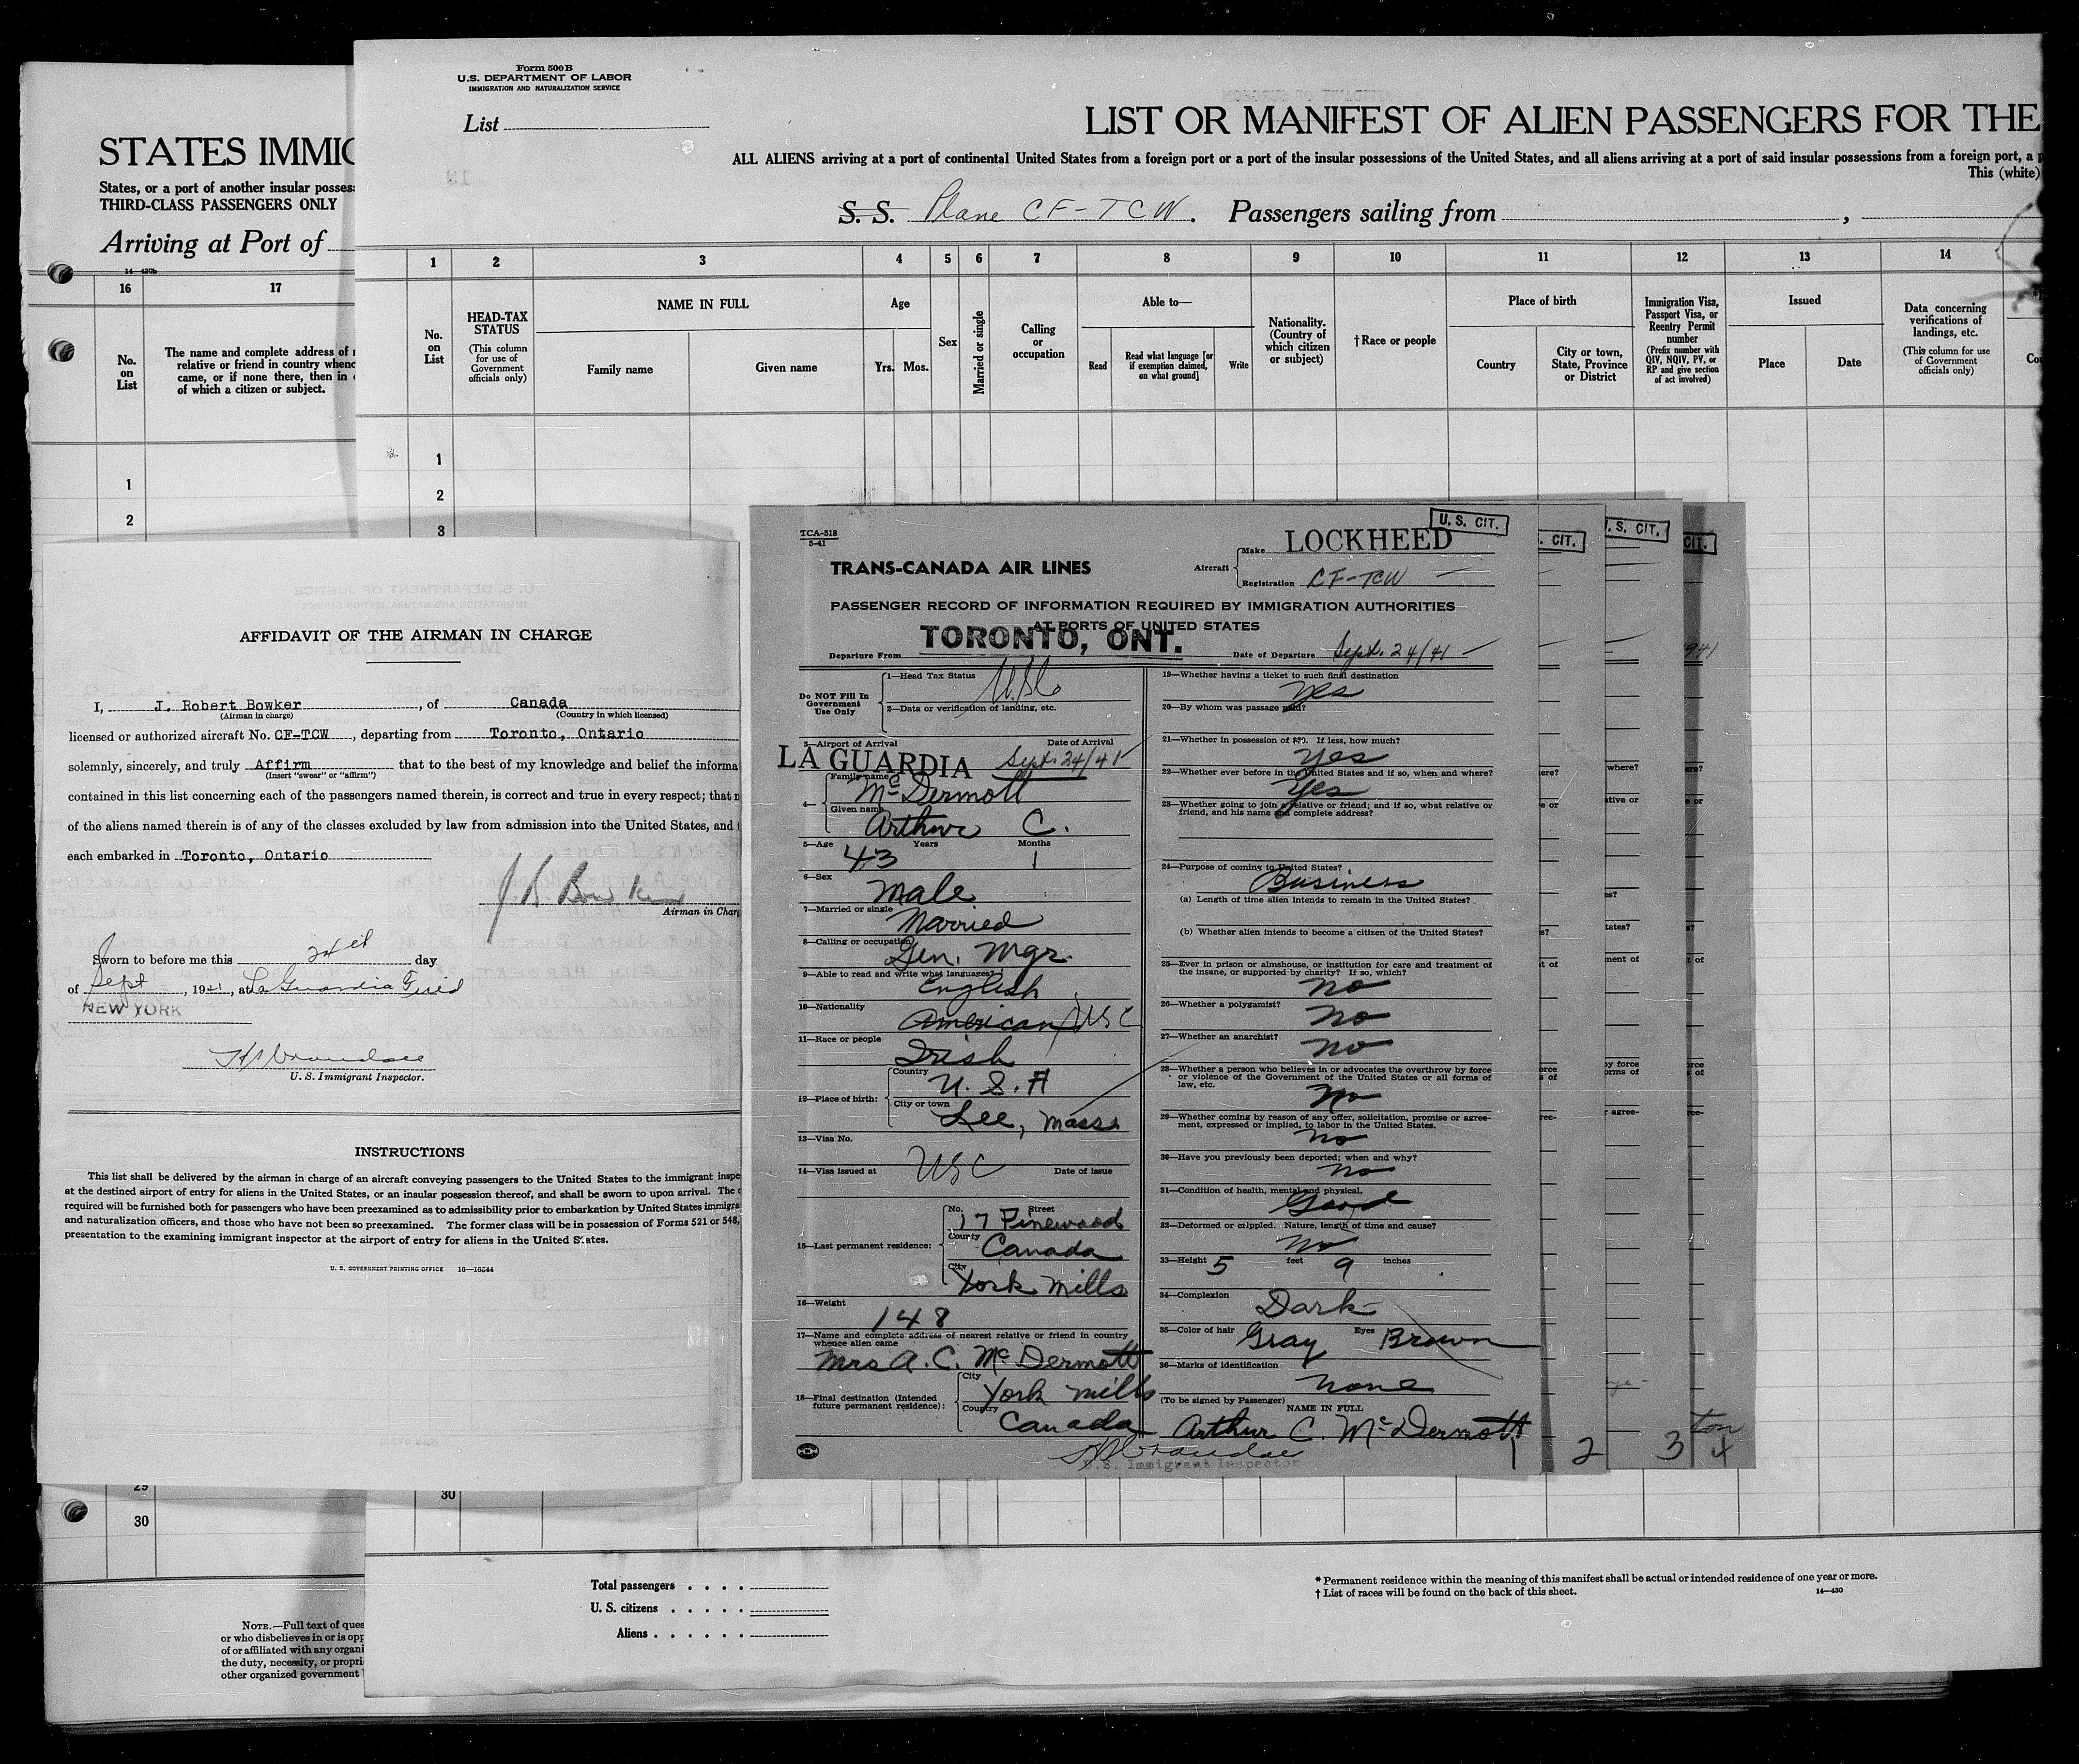 Form 500B
U.S. DEPARTMENT OF LABOR
IMMIGRATION AND NATURALIZATION SERVICE
List
LIST OR MANIFEST OF ALIEN PASSENGERS FOR THE
ALL ALIENS arriving at a port of continental United States from a foreign port or a port of the insular possessions of the United States, and all aliens arriving at a port of said insular possessions from a foreign port, a p
This (white)
S. S. Plane CF-TCW. Passengers sailing from
1 2 3 4 5 6 7 8 9 10 11 12 13 14
No. on List
HEAD-TAX STATUS
(This column for use of Government officials only)
NAME IN FULL
Family name
Given name
Age
Yrs. Mos.
Sex
Married or single
Calling or occupation
Able to—
Read
Read what language [or if exemption claimed, on what ground]
Write
Nationality. (Country of which citizen or subject)
† Race or people
Place of birth
Country
City or town, State, Province or District
Immigration Visa, Passport Visa, or Reentry Permit number
(Prefix number with QIV, NQIV, PV, or RP and give section of act involved)
Issued
Place
Date
Data concerning verifications of landings, etc.
(This column for use of Government officials only)
Cou
1
2
3
30
Total passengers
U. S. citizens
Aliens
* Permanent residence within the meaning of this manifest shall be actual or intended residence of one year or more.
† List of races will be found on the back of this sheet.
14—430
STATES IMMIG
States, or a port of another insular posses
THIRD-CLASS PASSENGERS ONLY
Arriving at Port of
14—430b
16 17
No. on List
The name and complete address of
relative or friend in country whenc
came, or if none there, then in
of which a citizen or subject.
1
2
29
30
NOTE.—Full text of ques
or who disbelieves in or is opp
of or affiliated with any organi
the duty, necessity, or propri
other organized government
AFFIDAVIT OF THE AIRMAN IN CHARGE
I, J. Robert Bowker, of Canada
(Airman in charge) (Country in which licensed)
licensed or authorized aircraft No. CF-TCW, departing from Toronto, Ontario
solemnly, sincerely, and truly Affirm that to the best of my knowledge and belief the informa
(Insert "swear" or "affirm")
contained in this list concerning each of the passengers named therein, is correct and true in every respect; that n
of the aliens named therein is of any of the classes excluded by law from admission into the United States, and
each embarked in Toronto, Ontario
J. R. Bowker
Airman in Char
Sworn to before me this 24th day
of Sept, 1941, at La Guardia Field
NEW YORK
U. S. Immigrant Inspector.
INSTRUCTIONS
This list shall be delivered by the airman in charge of an aircraft conveying passengers to the United States to the immigrant inspe
at the destined airport of entry for aliens in the United States, or an insular possession thereof, and shall be sworn to upon arrival. The
required will be furnished both for passengers who have been preexamined as to admissibility prior to embarkation by United States immigra
and naturalization officers, and those who have not been so preexamined. The former class will be in possession of Forms 521 or 548,
presentation to the examining immigrant inspector at the airport of entry for aliens in the United States.
U. S. GOVERNMENT PRINTING OFFICE 16—16544
TCA-518
5-41
U. S. CIT.
TRANS-CANADA AIR LINES
Aircraft
Make LOCKHEED
Registration CF-TCW
PASSENGER RECORD OF INFORMATION REQUIRED BY IMMIGRATION AUTHORITIES
AT PORTS OF UNITED STATES
Departure From TORONTO, ONT.
Date of Departure Sept. 24/41
Do NOT Fill In Government Use Only
1—Head Tax Status
2—Data or verification of landing, etc.
3—Airport of Arrival Date of Arrival
LA GUARDIA Sept. 24/41
4—
Family name McDermott
Given name Arthur C.
5—Age 43 Years 1 Months
6—Sex Male
7—Married or single Married
8—Calling or occupation Gen. Mgr.
9—Able to read and write what languages? English
10—Nationality American USC
11—Race or people Irish
12—Place of birth:
Country U. S. A
City or town Lee, Mass.
13—Visa No.
14—Visa issued at USC Date of issue
15—Last permanent residence:
No. 17 Street Pinewood
County Canada
City York Mills
16—Weight 148
17—Name and complete address of nearest relative or friend in country whence alien came
Mrs A. C. McDermott
18—Final destination (Intended future permanent residence):
City York Mills
Country Canada
19—Whether having a ticket to such final destination
Yes
20—By whom was passage paid?
21—Whether in possession of $50. If less, how much?
Yes
22—Whether ever before in the United States and if so, when and where?
Yes
23—Whether going to join a relative or friend; and if so, what relative or friend, and his name and complete address?
24—Purpose of coming to United States?
Business
(a) Length of time alien intends to remain in the United States?
(b) Whether alien intends to become a citizen of the United States?
25—Ever in prison or almshouse, or institution for care and treatment of the insane, or supported by charity? If so, which?
No
26—Whether a polygamist?
No
27—Whether an anarchist?
No
28—Whether a person who believes in or advocates the overthrow by force or violence of the Government of the United States or all forms of law, etc.
No
29—Whether coming by reason of any offer, solicitation, promise or agreement, expressed or implied, to labor in the United States.
No
30—Have you previously been deported; when and why?
No
31—Condition of health, mental and physical.
Good
32—Deformed or crippled. Nature, length of time and cause?
No
33—Height 5 feet 9 inches
34—Complexion Dark
35—Color of hair Gray Eyes Brown
36—Marks of identification
None
(To be signed by Passenger)
NAME IN FULL
Arthur C. McDermott
U.S. Immigrant Inspector
1 2 3 4